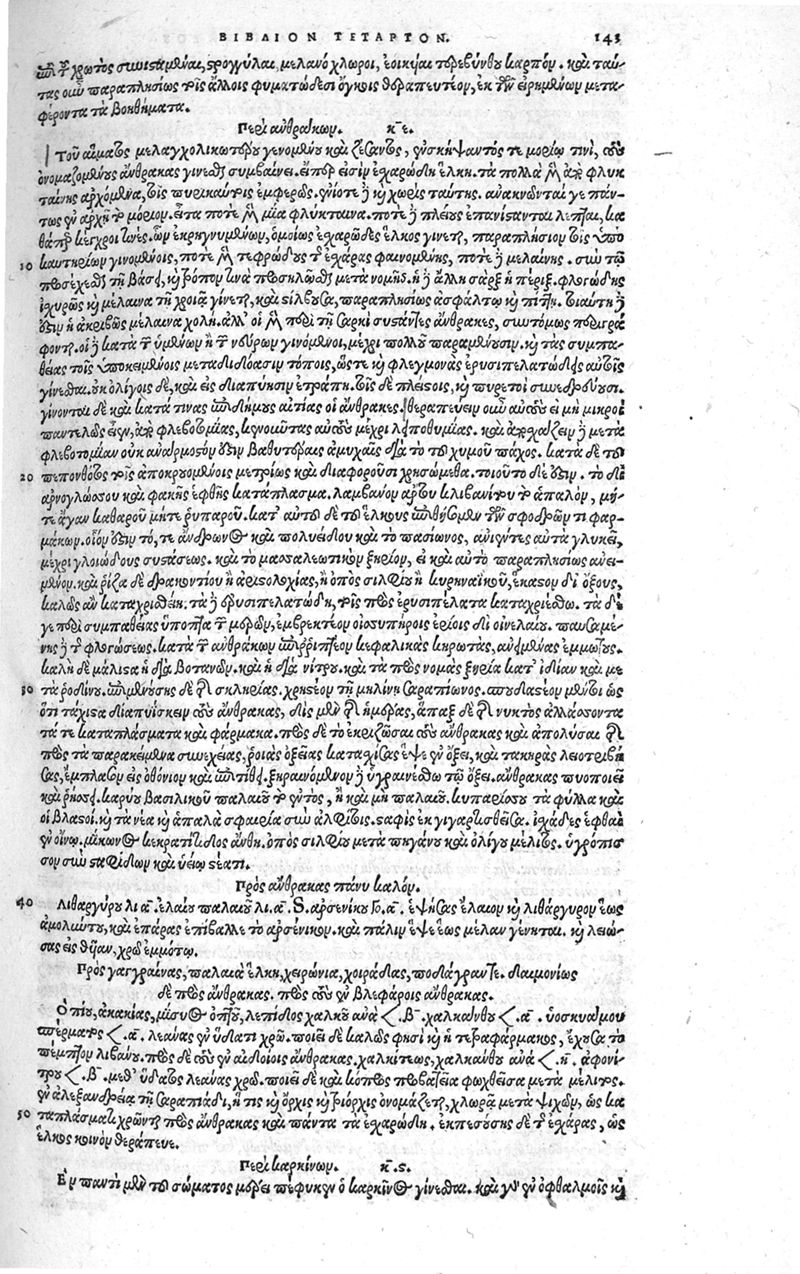 ΒΙΒΛΙΟΝ ΤΕΤΑΡΤΟΝ. 143
χρωτὸς συνιστάμεναι, στρογγύλαι, μελανόχλωροι, ἐοικυῖαι τερεβίνθου καρπῷ. καὶ ταύ-
τας οὖν παραπλησίως τοῖς ἄλλοις φυματώδεσι ὄγκοις θεραπευτέον, ἐκ τῶν εἰρημένων μετα-
φέροντα τὰ βοηθήματα.
Περὶ ἀνθράκων. κε.
Τοῦ αἵματος μελαγχολικωτέρου γενομένου καὶ ζέσαντος, ἐνσκήψαντός τε μορίῳ τινὶ, τοὺς
ὀνομαζομένους ἄνθρακας γίνεσθαι συμβαίνει. εἰσὶν ἐσχαρώδη ἕλκη. τὰ πολλὰ μὲν ἀπὸ φλυκ
ταίνης ἀρχόμενα, ταῖς πυρικαύτοις ἐμφεροῦς. ἐνίοτε δὲ καὶ χωρὶς ταύτης. ἀνακνῶνται γε πάν-
τως ἐν ἀρχῇ τὸ μόριον. εἶτα ποτὲ μὲν μία φλύκταινα. ποτὲ δὲ πλείους ἐπανίστανται λεπταὶ, κα
θάπερ κέγχροι τινές. ὧν ἐκρηγνυμένων, ὁμοίως ἐσχαρῶδες ἕλκος γίνεται, παραπλήσιον τοῖς ὑπὸ
10 καυτηρίων γινομένοις, ποτὲ μὲν τεφρώδους τῆς ἐσχάρας φαινομένης, ποτὲ δὲ μελαίνης. σὺν τῷ
προσέχεσθαι τῇ βάσει, καὶ τρόπον τινὰ προσηλῶσθαι μετὰ νομῆς. ἡ δὲ ἄλλη σὰρξ ἡ πέριξ φλογώδης
ἰσχυρῶς καὶ μέλαινα τῇ χροιᾷ γίνεται, καὶ στίλβουσα, παραπλησίως ἀσφάλτῳ καὶ πίττῃ. τοιαύτη δὲ
ἐστιν ἡ ἀκριβῶς μέλαινα χολή. ἀλλ' οἱ μὲν περὶ τῇ σαρκὶ συστάντες ἄνθρακες, συντόμως περιγρά
φονται. οἱ δὲ κατὰ τῶν ὑμένων ἢ τῶν νεύρων γινόμενοι, μέχρι πολλοῦ παραμένουσιν. καὶ τῆς συμπα-
θείας τοῖς ὑποκειμένοις μεταδιδόασιν τόποις, ὥστε καὶ φλεγμονὰς ἐρυσιπελατώδεις αὐτοῖς
γίνεσθαι. οὐκ ὀλίγοις δὲ, καὶ εἰς διαπύησιν ἐτράπη. τοῖς δὲ πλείστοις, καὶ πυρετοὶ συνεδρεύουσι.
γίνονται δὲ καὶ κατά τινας ἐπιδήμους αἰτίας οἱ ἄνθρακες. θεραπεύειν οὖν αὐτοὺς εἰ μὴ μικροὶ
παντελῶς εἶεν, ἀπὸ φλεβοτομίας, κενοῦντας αὐτοὺς μέχρι λειποθυμίας. καὶ ἀποσχάζειν δὲ μετὰ
φλεβοτομίαν οὐκ ἀνάρμοστόν ἐστιν βαθυτέραις ἀμυχαῖς διὰ τὸ τοῦ χυμοῦ πάχος. κατὰ δὲ τοῦ
20 πεπονθότος τοῖς ἀποκρουομένοις μετρίως καὶ διαφοροῦσι χρησόμεθα. τοιοῦτο δέ ἐστιν. τὸ δι'
ἀρνογλώσσου καὶ φακῆς ἑφθῆς κατάπλασμα. λαμβάνον ἄρτου κλιβανίτου τὸ ἁπαλὸν, μή-
τε ἄγαν καθαροῦ μήτε ῥυπαροῦ. κατ' αὐτοῦ δὲ τοῦ ἕλκους ἐπιθήσομεν τῶν σφοδρῶν τι φαρ-
μάκων. οἷόν ἐστιν τό, τε ἄνδρωνος καὶ πολυείδου καὶ τὸ πασίωνος, ἀνιέντες αὐτὰ γλυκεῖ,
μέχρι γλοιώδους συστάσεως. καὶ τὸ μασσαλεωτικὸν ξηρίον, εἰ καὶ αὐτὸ παραπλησίως ἀνει-
μένον. καὶ ῥίζα δὲ δρακοντίου ἢ ἀριστολοχίας, ἢ ὀπὸς σιλφίου ἢ κυρηναϊκοῦ, ἕκαστον δι' ὄξους,
καλῶς ἂν καταχρισθείη. τὰ δὲ ἐρυσιπελατώδη, τοῖς πρὸς ἐρυσιπέλατα καταχριέσθω. τὰ δὲ
γε περὶ συμπαθείας ὕποπτα τῶν μερῶν, ἐμβρεκτέον οἰσυπηροῖς ἐρίοις δι' οἰνελαίου. παυσαμέ-
νης δὲ τῆς φλογώσεως. κατὰ τῶν ἀνθράκων ἐπιρριπτέον κεφαλικὰς κηρωτάς, ἀνειμένας ἐμμώτους.
καλὴ δὲ μάλιστα ἡ διὰ βοτανῶν. καὶ ἡ διὰ νίτρου. καὶ τὰ πρὸς νομὰς ξηρία κατ' ἰδίαν καὶ με
30 τὰ ῥοδίνου. ἐπιμενούσης δὲ τῆς σκληρίας. χρηστέον τῇ μηλίνῃ σαραπίωνος. σπουδαστέον μέντοι ὡς
ὅτι τάχιστα διαπυΐσκειν τοὺς ἄνθρακας, δὶς μὲν τῆς ἡμέρας, ἅπαξ δὲ τῆς νυκτὸς ἀλλάσσοντα
τά τε καταπλάσματα καὶ φάρμακα. πρὸς δὲ τὸ ἐκριζῶσαι τοὺς ἄνθρακας καὶ ἀπολῦσαι τῆς
πρὸς τὰ παρακείμενα συνεχείας, ῥοιὰς ὀξείας κατασχίσας ἕψε ἐν ὄξει, καὶ τακηρὰς λειοτριβή
σας, ἔμπλασον εἰς ὀθόνιον καὶ ἐπιτίθει. ξηραινόμενον δὲ ὑγραινέσθω τῷ ὄξει. ἄνθρακας πυοποιεῖ
καὶ ῥήσσει. καρύου βασιλικοῦ παλαιοῦ τὸ ἐντὸς, ἢ καὶ μὴ παλαιοῦ. κυπαρίσσου τὰ φύλλα καὶ
οἱ βλαστοὶ. καὶ τὰ νέα καὶ ἁπαλὰ σφαιρία σὺν ἀλφίτοις. σταφὶς ἐκγιγαρτισθεῖσα. ἰσχάδες ἑφθαὶ
ἐν οἴνῳ. μίκωνος κερατίτιδος ἄνθη. ὀπὸς σιλφίου μετὰ πηγάνου καὶ ὀλίγου μέλιτος. ὑγρόπισ
σον σὺν σταφίδων καὶ ὑείῳ στέατι.
Πρὸς ἄνθρακας πάνυ καλόν.
40 Λιθαργύρου λι α. ἐλαίου παλαιοῦ λι. α. S. ἀρσενίκου Γο. α. ἑψήσας ἔλαιον καὶ λιθάργυρον ἕως
ἀμολύντου, καὶ ἐπάρας ἐπίβαλλε τὸ ἀρσένικον. καὶ πάλιν ἕψε ἕως μέλαν γένηται. καὶ λειώ-
σας εἰς θυῖαν, χρῶ ἐμμότῳ.
Πρὸς γαγγραίνας, παλαιὰ ἕλκη, χειρώνια, χοιράδας, ποδάγραν τε. δαιμονίως
δὲ πρὸς ἄνθρακας. πρὸς τοὺς ἐν βλεφάροις ἄνθρακας.
Ὀπίου, ἀκακίας, μίσυος ὀπτοῦ, λεπίδος χαλκοῦ ἀνὰ <. β. χαλκάνθου <. α. ὑοσκυάμου
σπέρματος <. α. λεάνας ἐν ὕδατι χρῶ. ποιεῖ δὲ καλῶς φησὶ καὶ ἡ τετραφάρμακος, ἔχουσα τὸ
πέμπτον λιβάνου. πρὸς δὲ τοὺς ἐν αἰδοίοις ἄνθρακας. χαλκίτεως, χαλκάνθου ἀνὰ <. η. ἀφρονί-
τρου <. β. μεθ' ὕδατος λεάνας χρῶ. ποιεῖ δὲ καὶ κόπρος προβατεία φωχθεῖσα μετὰ μέλιτος.
ἐν ἀλεξανδρείᾳ τῇ σαραπιάδι, ἥ τις καὶ ὄρχις καὶ τριόρχις ὀνομάζεται, χλωρᾷ μετὰ ψιχῶν, ὡς κα
50 ταπλάσματι χρῶνται πρὸς ἄνθρακας καὶ πάντα τὰ ἐσχαρώδη. ἐκπεσούσης δὲ τῆς ἐσχάρας, ὡς
ἕλκος κοινὸν θεράπευε.
Περὶ καρκίνων. κϛ.
Ἐν παντὶ μὲν τοῦ σώματος μέρει πέφυκεν ὁ καρκῖνος γίνεσθαι. καὶ γὰρ ἐν ὀφθαλμοῖς καὶ